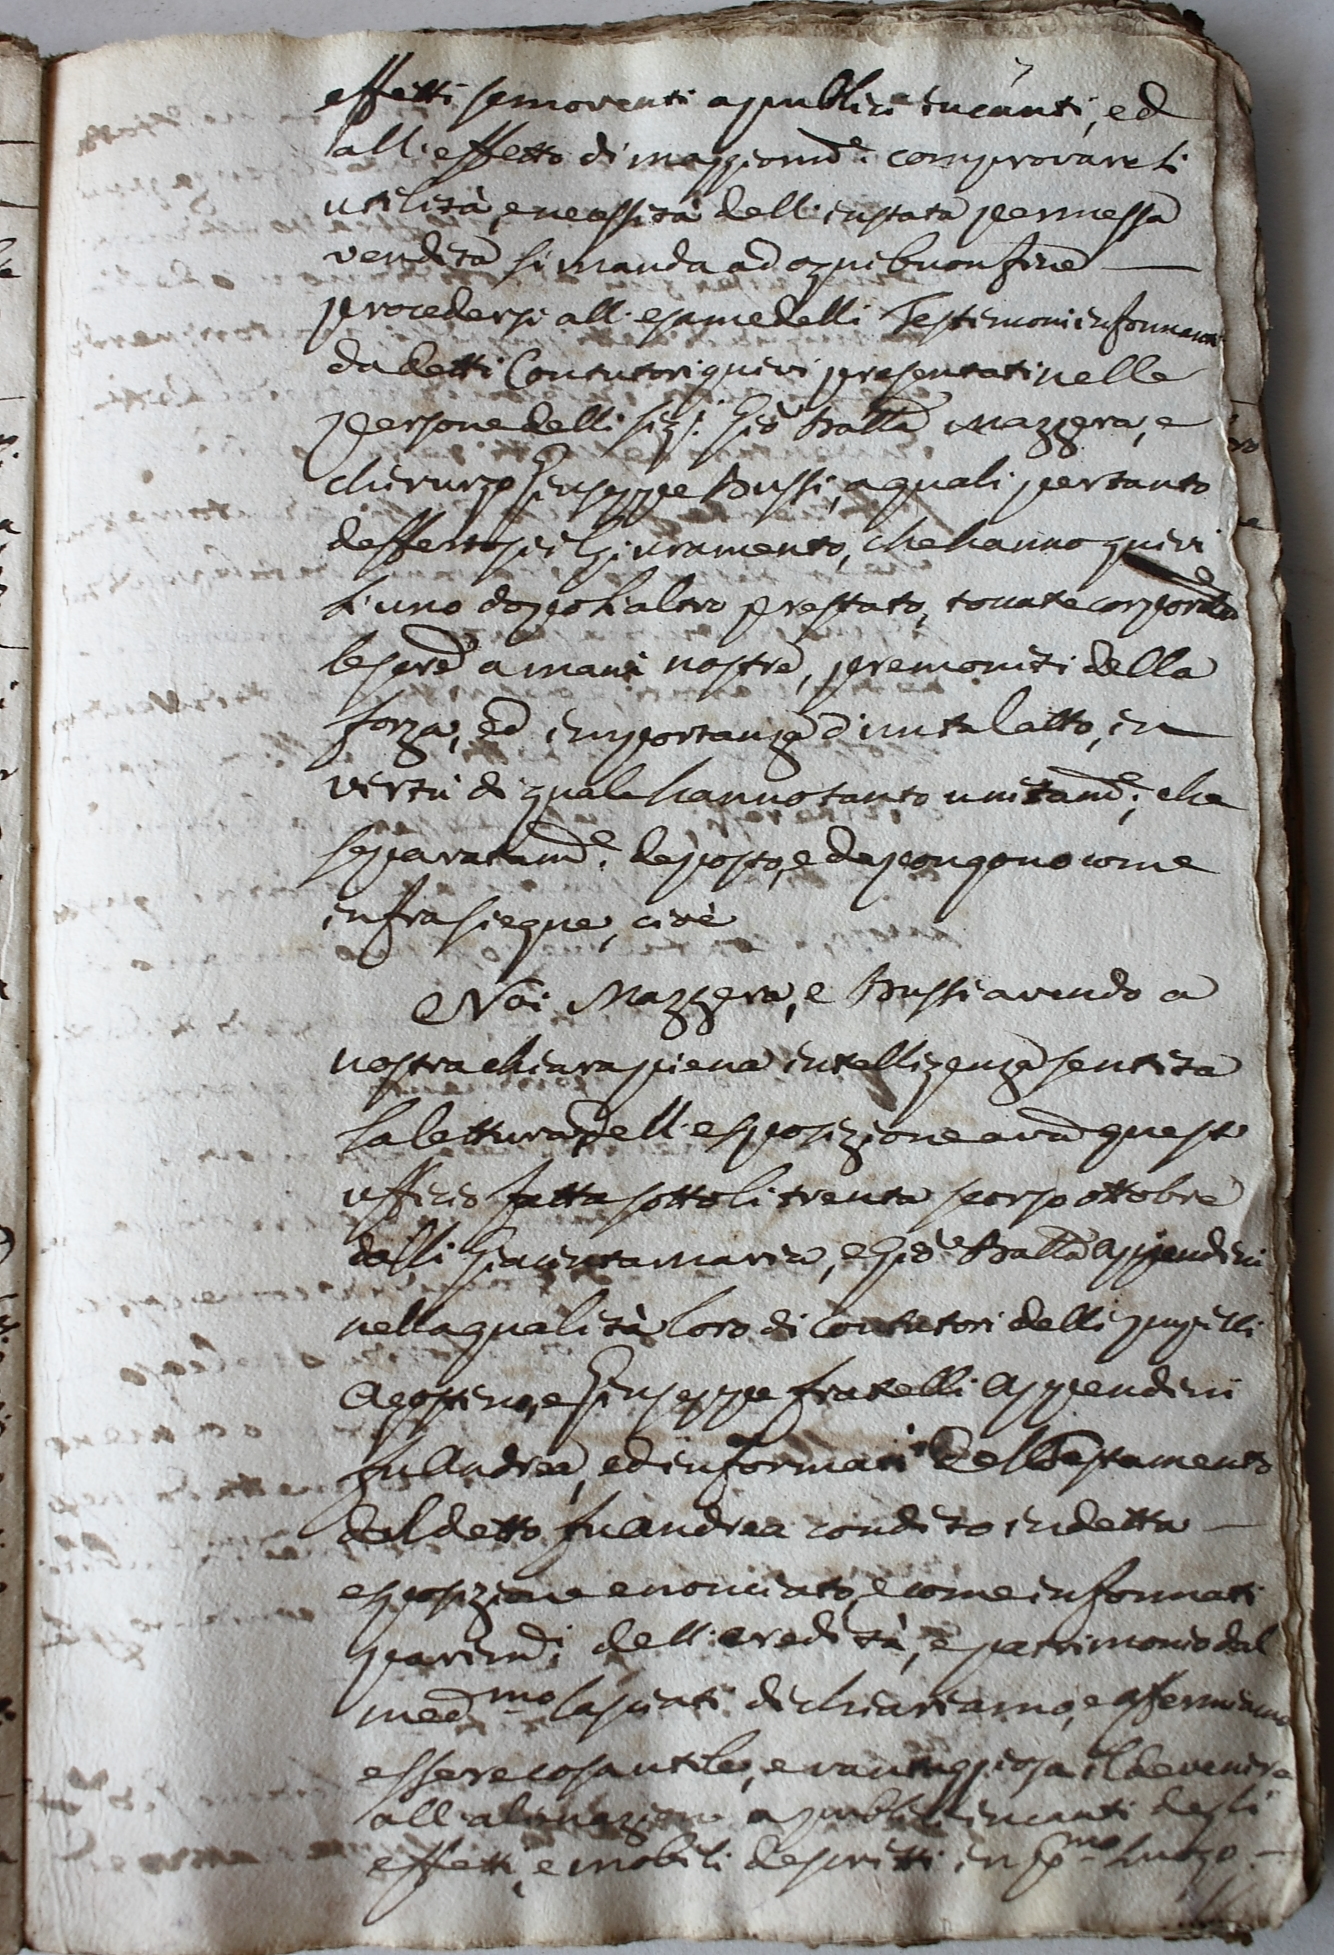 effetti semoventi a publici incanti, ed
all'effetto di maggiorm.e comprovare li
utilità, e necessità dell'instata permessa
vendita si manda ad ogni buon fine —
procedersi all'esame delli Testimoni informati
da detti Contutori quivi presentati nelle
persone delli sig.i Gio Batta Mazzera, e
chirurgo Giuseppe Bussi, a quali pertanto
deffertosi il Giuramento, che hanno quivi
l'uno doppo l'altro prestato, toccate corporalm
le scrē a mani nostre, premoniti della
forza, ed importanza d'un tal atto, in
vertù di quale hanno tanto unitam.e, che
separatam.e deposto, e depongono come
infra siegue, cioè
Noi Mazzera, e Bussi avendo a
nostra chiara piena intelligenza sentita
la lettura dell'esposizione avā quest
ufficio fatta sotto li trenta scorso ottobre
dalli Giacinta maria, e Gio Batta Appendini
nella qualità loro di Contutori delli pupilli
Agostino, e Giuseppe fratelli Appendini
fu Andrea, ed informati del Testamento
del detto fu Andrea condito in detta —
esposizione enonciato, e come informati
parim.i dell'eredità, e patrimonio dal
med.mo lasciati dichiariamo, e affermiamo
essere cosa utile, e vantaggiosa il devenire
all'alienazione a publici incanti degli
effetti, e mobili descritti in p.mo luogo —